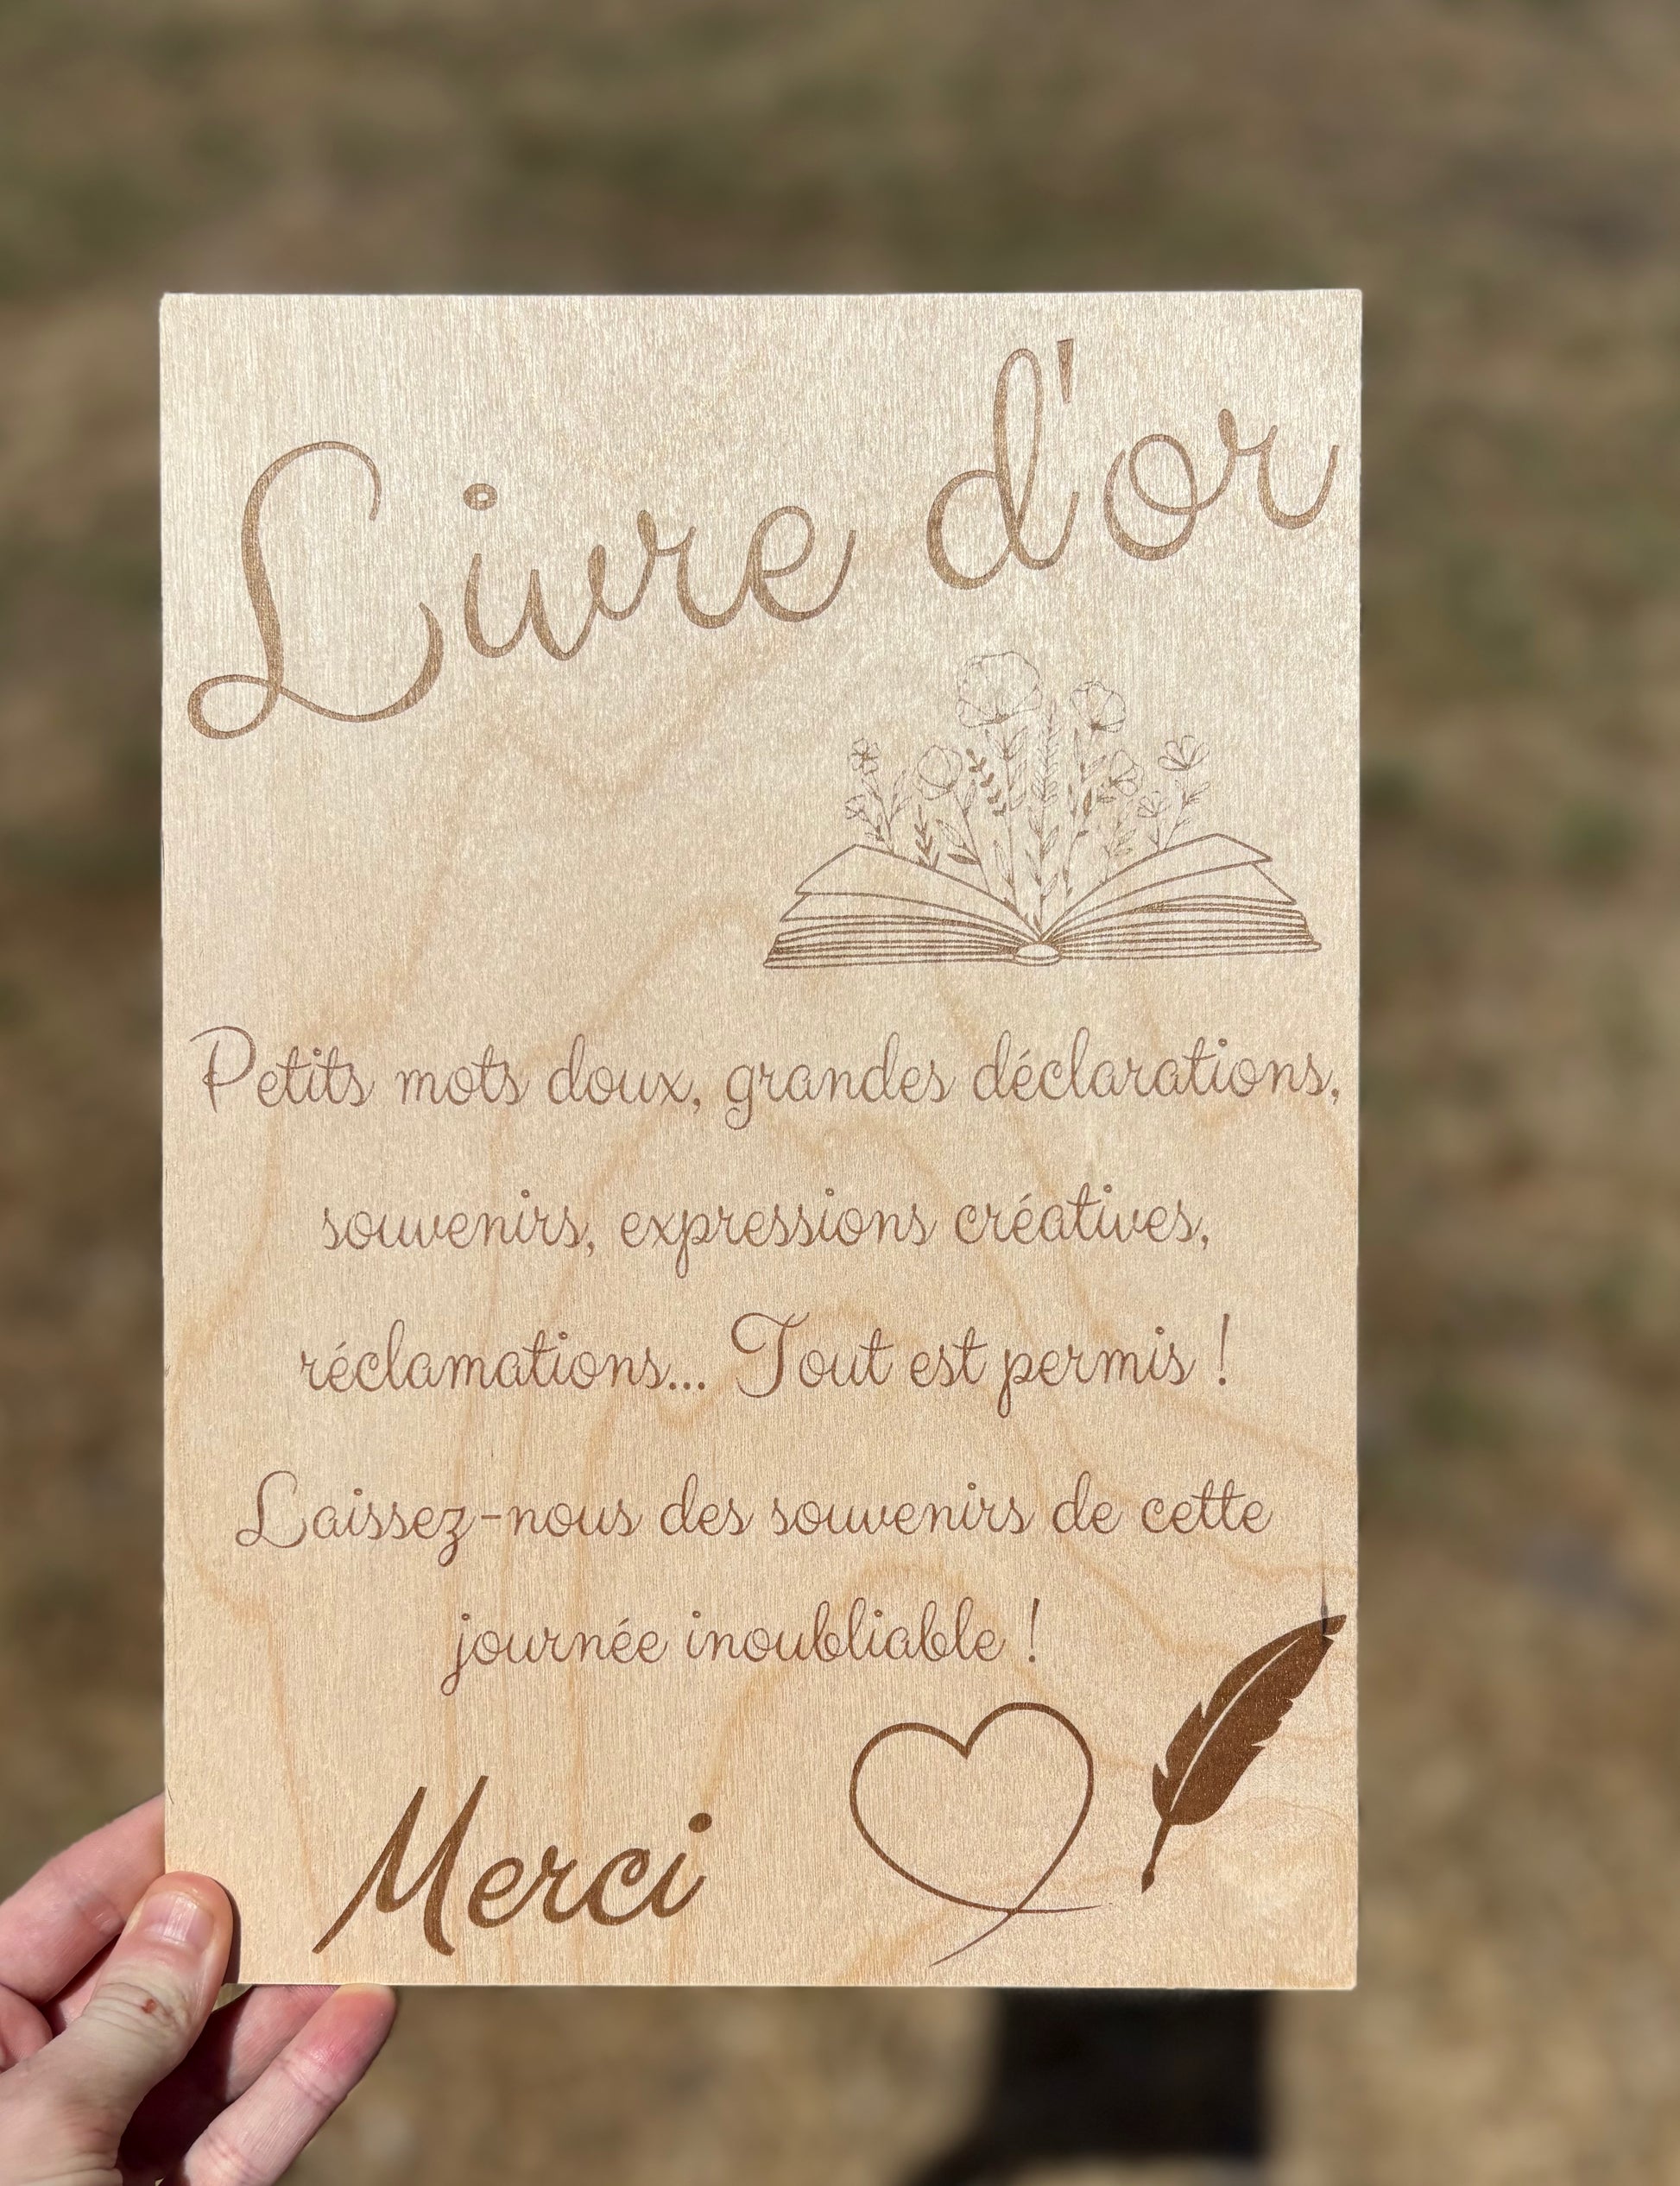 Livre d'or
Petits mots doux, grandes déclarations,
souvenirs, expressions créatives,
réclamations... Tout est permis !
Laissez-nous des souvenirs de cette
journée inoubliable !
Merci